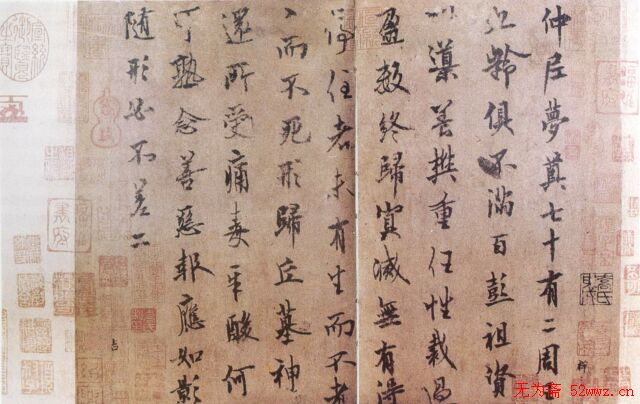 仲尼夢奠七十有二周王
九齡俱不滿百彭祖資
以導養樊重任性裁過
盈數終歸冥滅無有得
停住者未有生而不老
〻而不死形歸丘墓神
還所受痛毒辛酸何
可熟念善惡報應如影
随形必不差二
无为斋 52wwz.cn